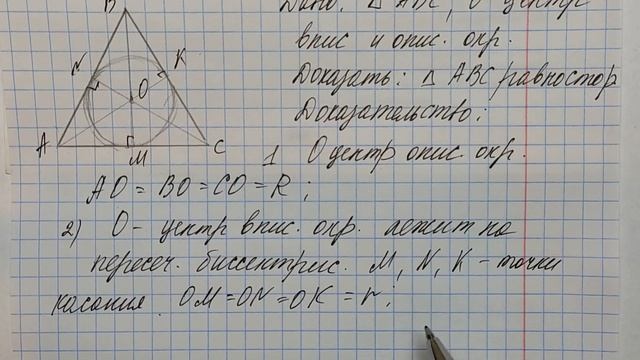 B
Дано: △ ABC, O центр
впис и опис. окр.
N
K
O
Доказать: △ ABC равностор
Доказательство:
A
M
C
1 O центр опис. окр.
AO = BO = CO = R ;
2) O - центр впис. окр. лежит на
пересеч. биссектрис. M, N, K - точки
касания. OM = ON = OK = r ;